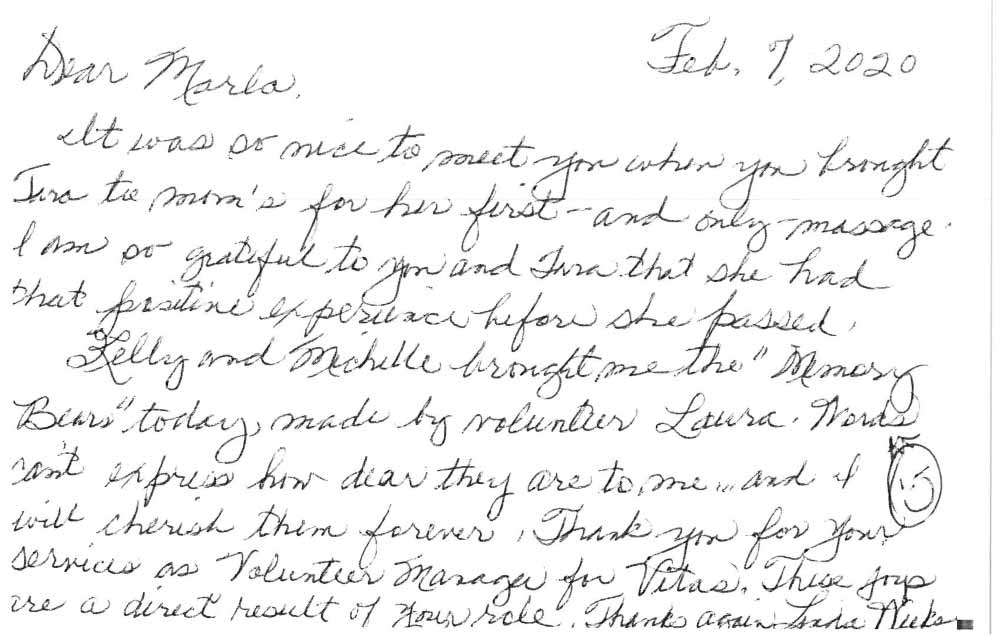 Feb. 7, 2020
Dear Marla,
It was so nice to meet you when you brought
to mom's for her first - and only - massage.
I am so grateful to you and that she had
that experience before she passed.
Kelly and Michelle brought me the "Memory
Bears" today, made by volunteer Laura. Words
can't express how dear they are to me... and I
will cherish them forever. Thank you for your
services as Volunteer Manager for Vitas. These joys
are a direct result of your role. Thanks again